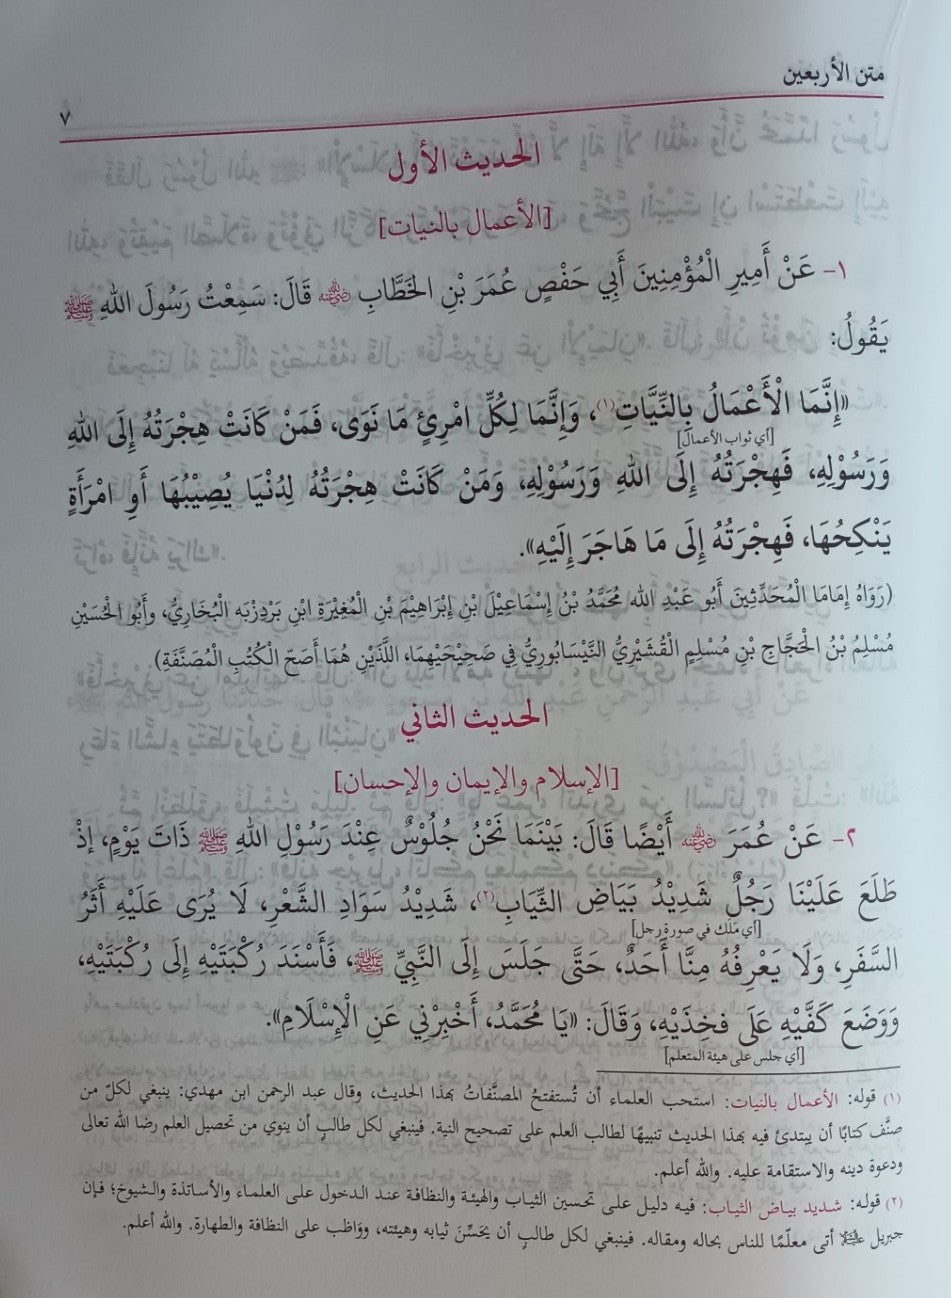 متن الأربعين
٧
الحديث الأول
[الأعمال بالنيات]
١- عَنْ أَمِيرِ الْمُؤْمِنِينَ أَبِي حَفْصٍ عُمَرَ بْنِ الخَطَّابِ رضي الله عنه قَالَ: سَمِعْتُ رَسُولَ اللهِ ﷺ
يَقُولُ:
«إِنَّمَا الْأَعْمَالُ بِالنِّيَّاتِ(١)، وَإِنَّمَا لِكُلِّ امْرِئٍ مَا نَوَى، فَمَنْ كَانَتْ هِجْرَتُهُ إِلَى اللهِ
[أي ثواب الأعمال]
وَرَسُوْلِهِ، فَهِجْرَتُهُ إِلَى اللهِ وَرَسُوْلِهِ، وَمَنْ كَانَتْ هِجْرَتُهُ لِدُنْيَا يُصِيْبُهَا أَوِ امْرَأَةٍ
يَنْكِحُهَا، فَهِجْرَتُهُ إِلَى مَا هَاجَرَ إِلَيْهِ».
(رَوَاهُ إِمَامَا الْمُحَدِّثِينَ أَبُو عَبْدِ الله مُحَمَّدُ بْنُ إِسْمَاعِيْلَ بْنِ إِبْرَاهِيْمَ بْنِ الْمُغِيْرَةِ ابْنِ بَرْدِزْبَه الْبُخَارِيُّ، وأَبُو الْحُسَيْنِ
مُسْلِمُ بْنُ الْحَجَّاجِ بْنِ مُسْلِمٍ الْقُشَيْرِيُّ النَّيْسَابُورِيُّ فِي صَحِيْحَيْهِمَا، اللَّذَيْنِ هُمَا أَصَحّ الْكُتُبِ الْمُصَنَّفَةِ)
الحديث الثاني
[الإسلام والإيمان والإحسان]
٢- عَنْ عُمَرَ رضي الله عنه أَيْضًا قَالَ: بَيْنَمَا نَحْنُ جُلُوْسٌ عِنْدَ رَسُوْلِ اللهِ ﷺ ذَاتَ يَوْمٍ، إِذْ
طَلَعَ عَلَيْنَا رَجُلٌ شَدِيْدُ بَيَاضِ الثِّيَابِ(٢)، شَدِيْدُ سَوَادِ الشَّعْرِ، لَا يُرَى عَلَيْهِ أَثَرُ
[أي مَلَك في صورة رجل]
السَّفَرِ، وَلَا يَعْرِفُهُ مِنَّا أَحَدٌ، حَتَّى جَلَسَ إِلَى النَّبِيِّ ﷺ، فَأَسْنَدَ رُكْبَتَيْهِ إِلَى رُكْبَتَيْهِ،
وَوَضَعَ كَفَّيْهِ عَلَى فَخِذَيْهِ، وَقَالَ: «يَا مُحَمَّدُ، أَخْبِرْنِي عَنِ الْإِسْلَامِ».
[أي جلس على هيئة المتعلم]
(١) قوله: الأعمال بالنيات: استحب العلماء أن تُستفتحُ المصنَّفاتُ بهذا الحديث، وقال عبد الرحمن ابن مهدي: ينبغي لكلّ من
صنَّف كتابًا أن يبتدئ فيه بهذا الحديث تنبيهًا لطالب العلم على تصحيح النية. فينبغي لكل طالبٍ أن ينوي من تحصيل العلم رضا الله تعالى
ودعوة دينه والاستقامة عليه. والله أعلم.
(٢) قوله: شديد بياض الثياب: فيه دليل على تحسين الثياب والهيئة والنظافة عند الدخول على العلماء والأساتذة والشيوخ؛ فإن
جبريل عليه السلام أتى معلّمًا للناس بحاله ومقاله. فينبغي لكل طالبٍ أن يحَسِّنَ ثيابه وهيئته، ووَاظب على النظافة والطهارة. والله أعلم.